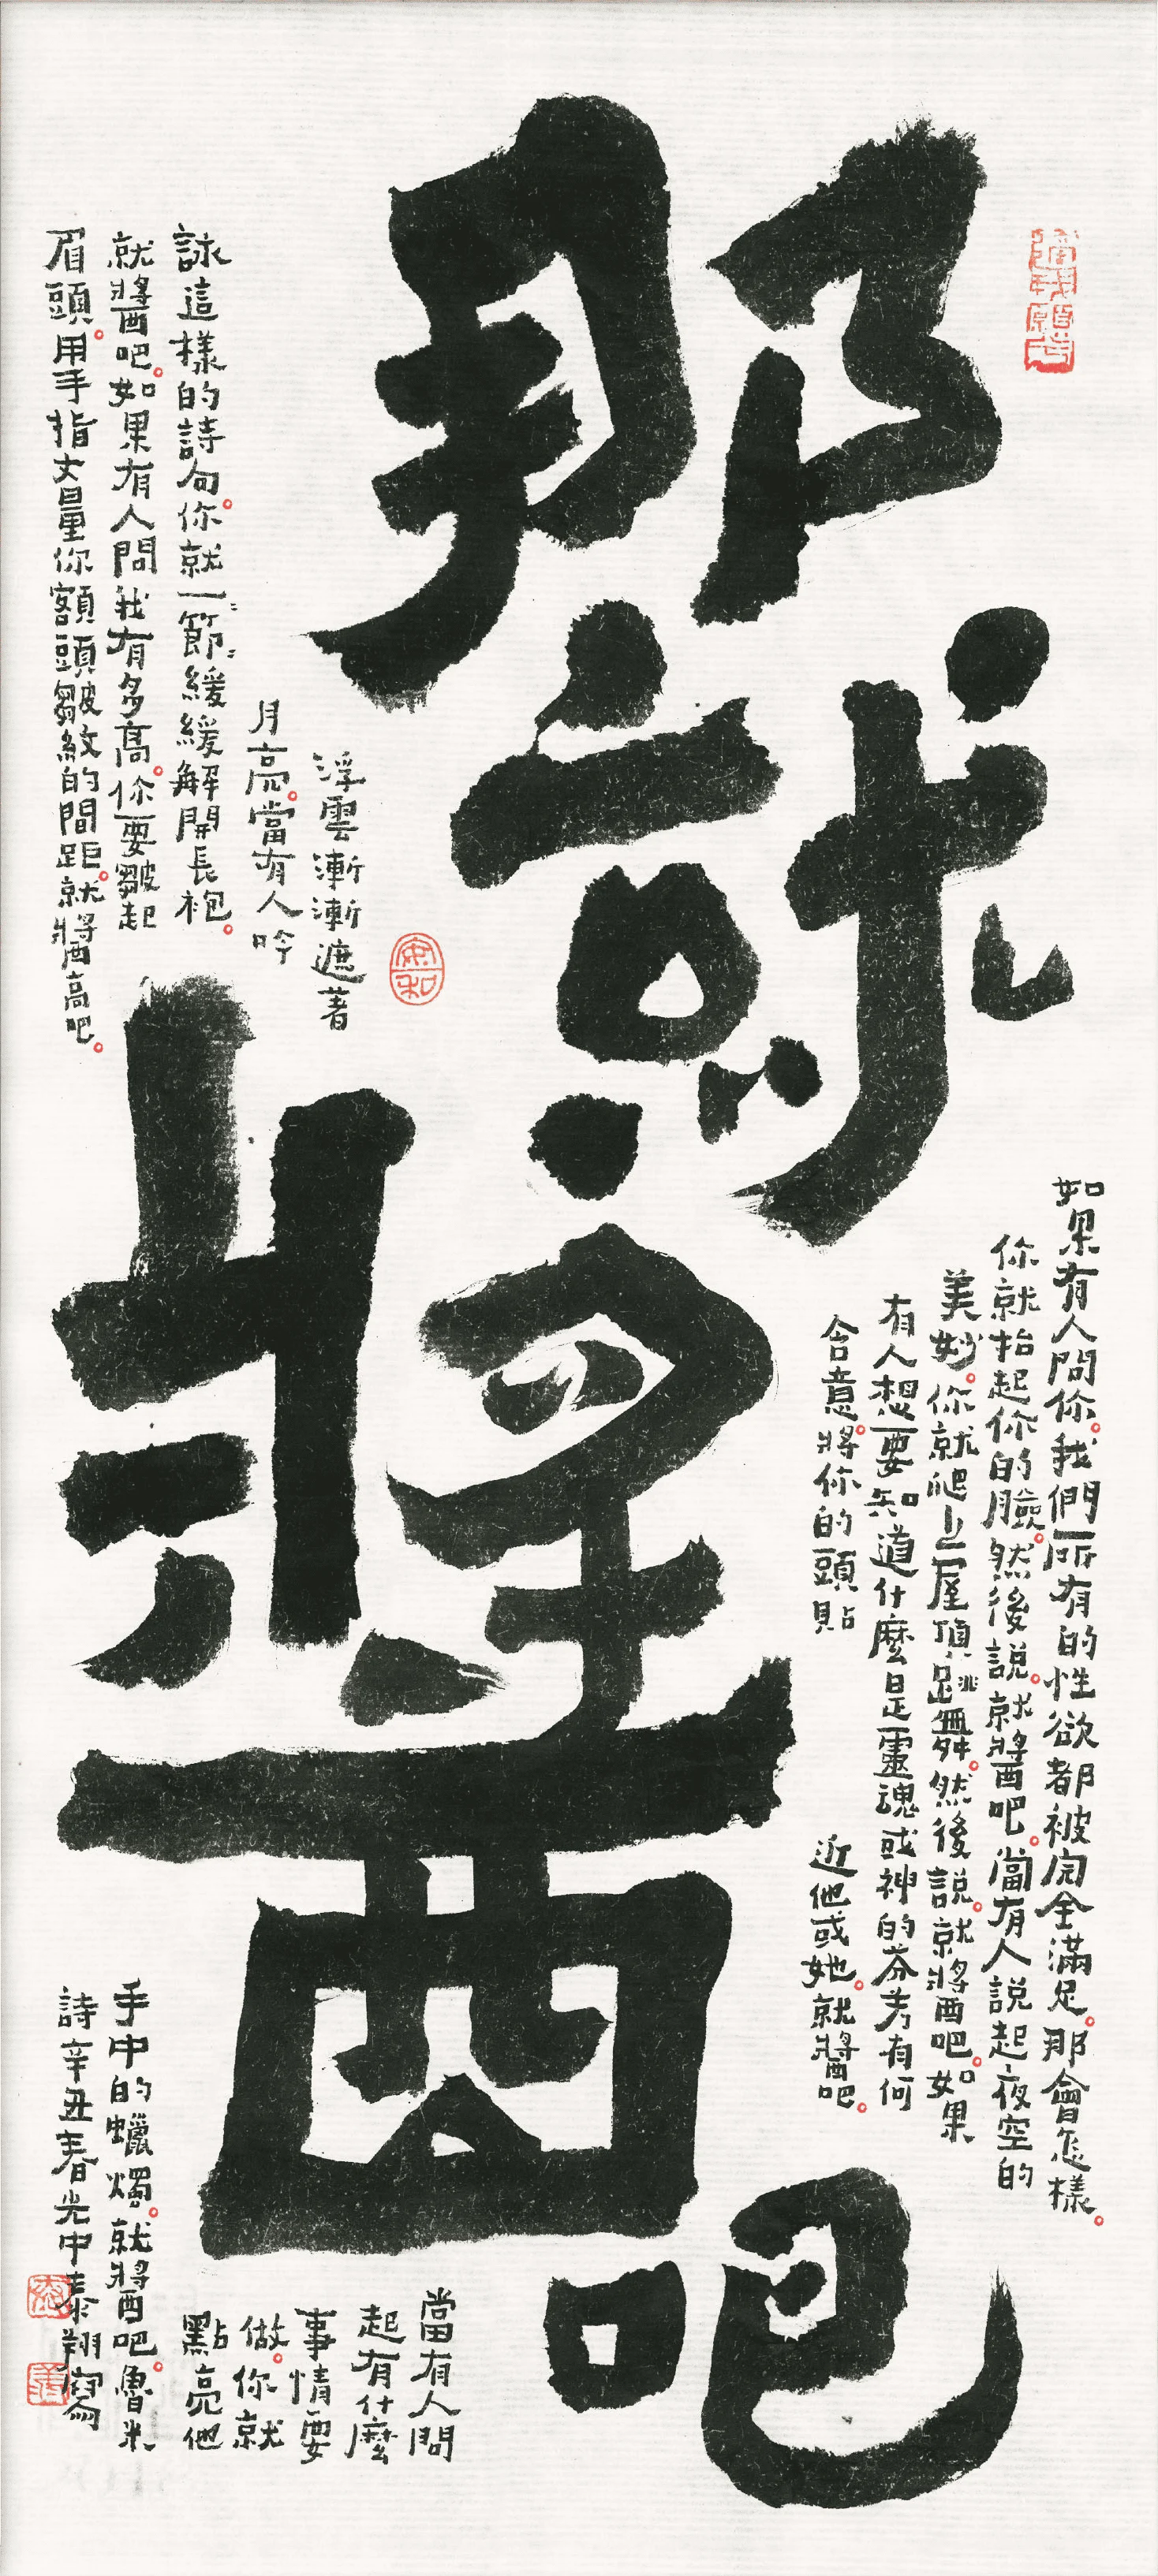 那就醬吧
如果有人問你。我們所有的性欲都被完全滿足。那會怎樣。
你就抬起你的臉。然後說。就醬吧。當有人說起夜空的
美妙。你就爬上屋頂跳舞。然後說。就醬吧。如果
有人想要知道什麼是靈魂或神的芬芳有何
含意。將你的頭貼
近他或她。就醬吧。
浮雲漸漸遮著
月亮。當有人吟
詠這樣的詩句。你就一節一節緩緩解開長袍。
就醬吧。如果有人問我有多高。你要皺起
眉頭。用手指丈量你額頭皺紋的間距。就醬高吧。
當有人問
起有什麼
事情要
做。你就
點亮他
手中的蠟燭。就醬吧。魯米
詩辛丑春光中泰翔寫